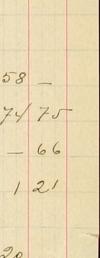 58 —
74/ 75
— 66
1 21
20